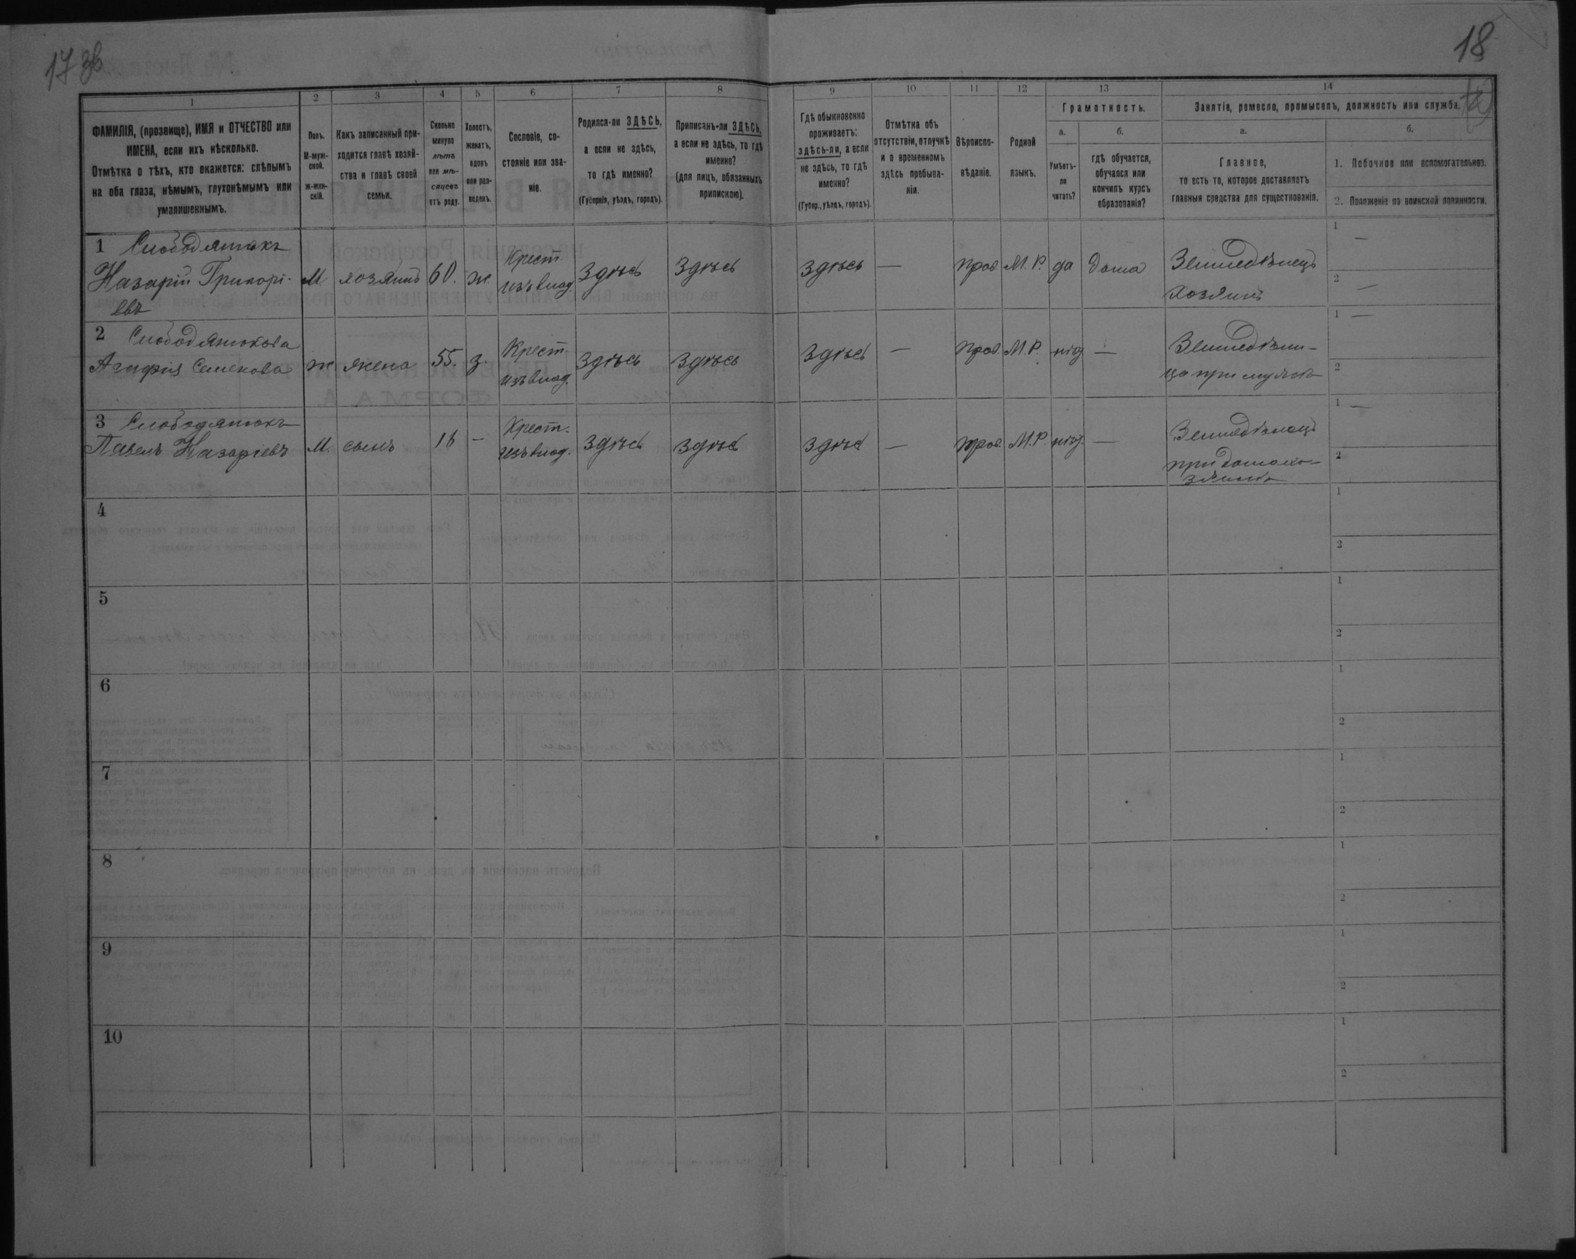 17 зв
18
1
2
3
4
5
6
7
8
9
10
11
12
13
14
ФАМИЛІЯ, (прозвище), ИМЯ и ОТЧЕСТВО или
ИМЕНА, если ихъ нѣсколько.
Отмѣтка о тѣхъ, кто окажется: слѣпымъ
на оба глаза, нѣмымъ, глухонѣмымъ или
умалишеннымъ.
Полъ.
М-муж-
ской.
ж-жен-
скій.
Какъ записанный при-
ходится главѣ хозяй-
ства и главѣ своей
семьи.
Сколько
минуло
лѣтъ
или мѣ-
сяцевъ
отъ роду.
Холостъ,
женатъ,
вдовъ
или раз-
веденъ.
Сословіе, со-
стояніе или зва-
ніе.
Родился-ли ЗДѢСЬ,
а если не здѣсь,
то гдѣ именно?
(Губернія, уѣздъ, городъ).
Приписанъ-ли ЗДѢСЬ,
а если не здѣсь, то гдѣ
именно?
(для лицъ, обязанныхъ
припискою).
Гдѣ обыкновенно
проживаетъ:
здѣсь-ли, а если
не здѣсь, то гдѣ
именно?
(Губер., уѣздъ, городъ).
Отмѣтка объ
отсутствіи, отлучкѣ
и о временномъ
здѣсь пребыва-
ніи.
Вѣроиспо-
вѣданіе.
Родной
языкъ.
Грамотность.
а.
Умѣетъ-
ли
читать?
б.
гдѣ обучается,
обучался или
кончилъ курсъ
образованія?
Занятіе, ремесло, промыселъ, должность или служба.
а.
Главное,
то есть то, которое доставляетъ
главныя средства для существованія.
б.
1. Побочное или вспомогательное.
2. Положеніе по воинской повинности.
1 Слободянюкъ
Назарій Григорі-
евъ
М хозяинъ 60. ж Крест
изъ влад. Здѣсь Здѣсь Здѣсь — Прав М.Р. да дома Земледѣлецъ
хозяинъ
1 —
2 —
2 Слободянюкова
Агафія Семенова
ж жена 55. з. Крест.
изъ влад. Здѣсь Здѣсь Здѣсь — Прав М.Р. нѣт — Земледѣли-
ца при мужѣ
1 —
2
3 Слободянюкъ
Павелъ Назаріевъ
М. сынъ 16 — Крест.
изъ влад. Здѣсь Здѣсь Здѣсь — Прав М.Р нѣт — Земледѣлецъ
при домохо-
зяинѣ
1 —
2
4
1
2
5
1
2
6
1
2
7
1
2
8
1
2
9
1
2
10
1
2